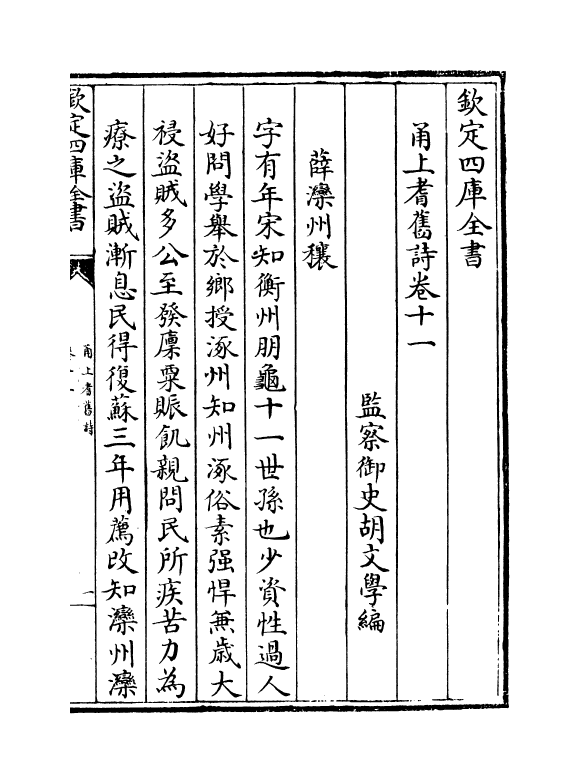 欽定四庫全書
甬上耆舊詩卷十一
監察御史胡文學編
薛灤州穰
字有年宋知衡州朋龜十一世孫也少資性過人
好問學舉於鄉授涿州知州涿俗素强悍兼歳大
祲盜賊多公至發廩粟賑飢親問民所疾苦力為
療之盜賊漸息民得復蘇三年用薦改知灤州灤
欽定四庫全書
甬上耆舊詩
卷十一
一